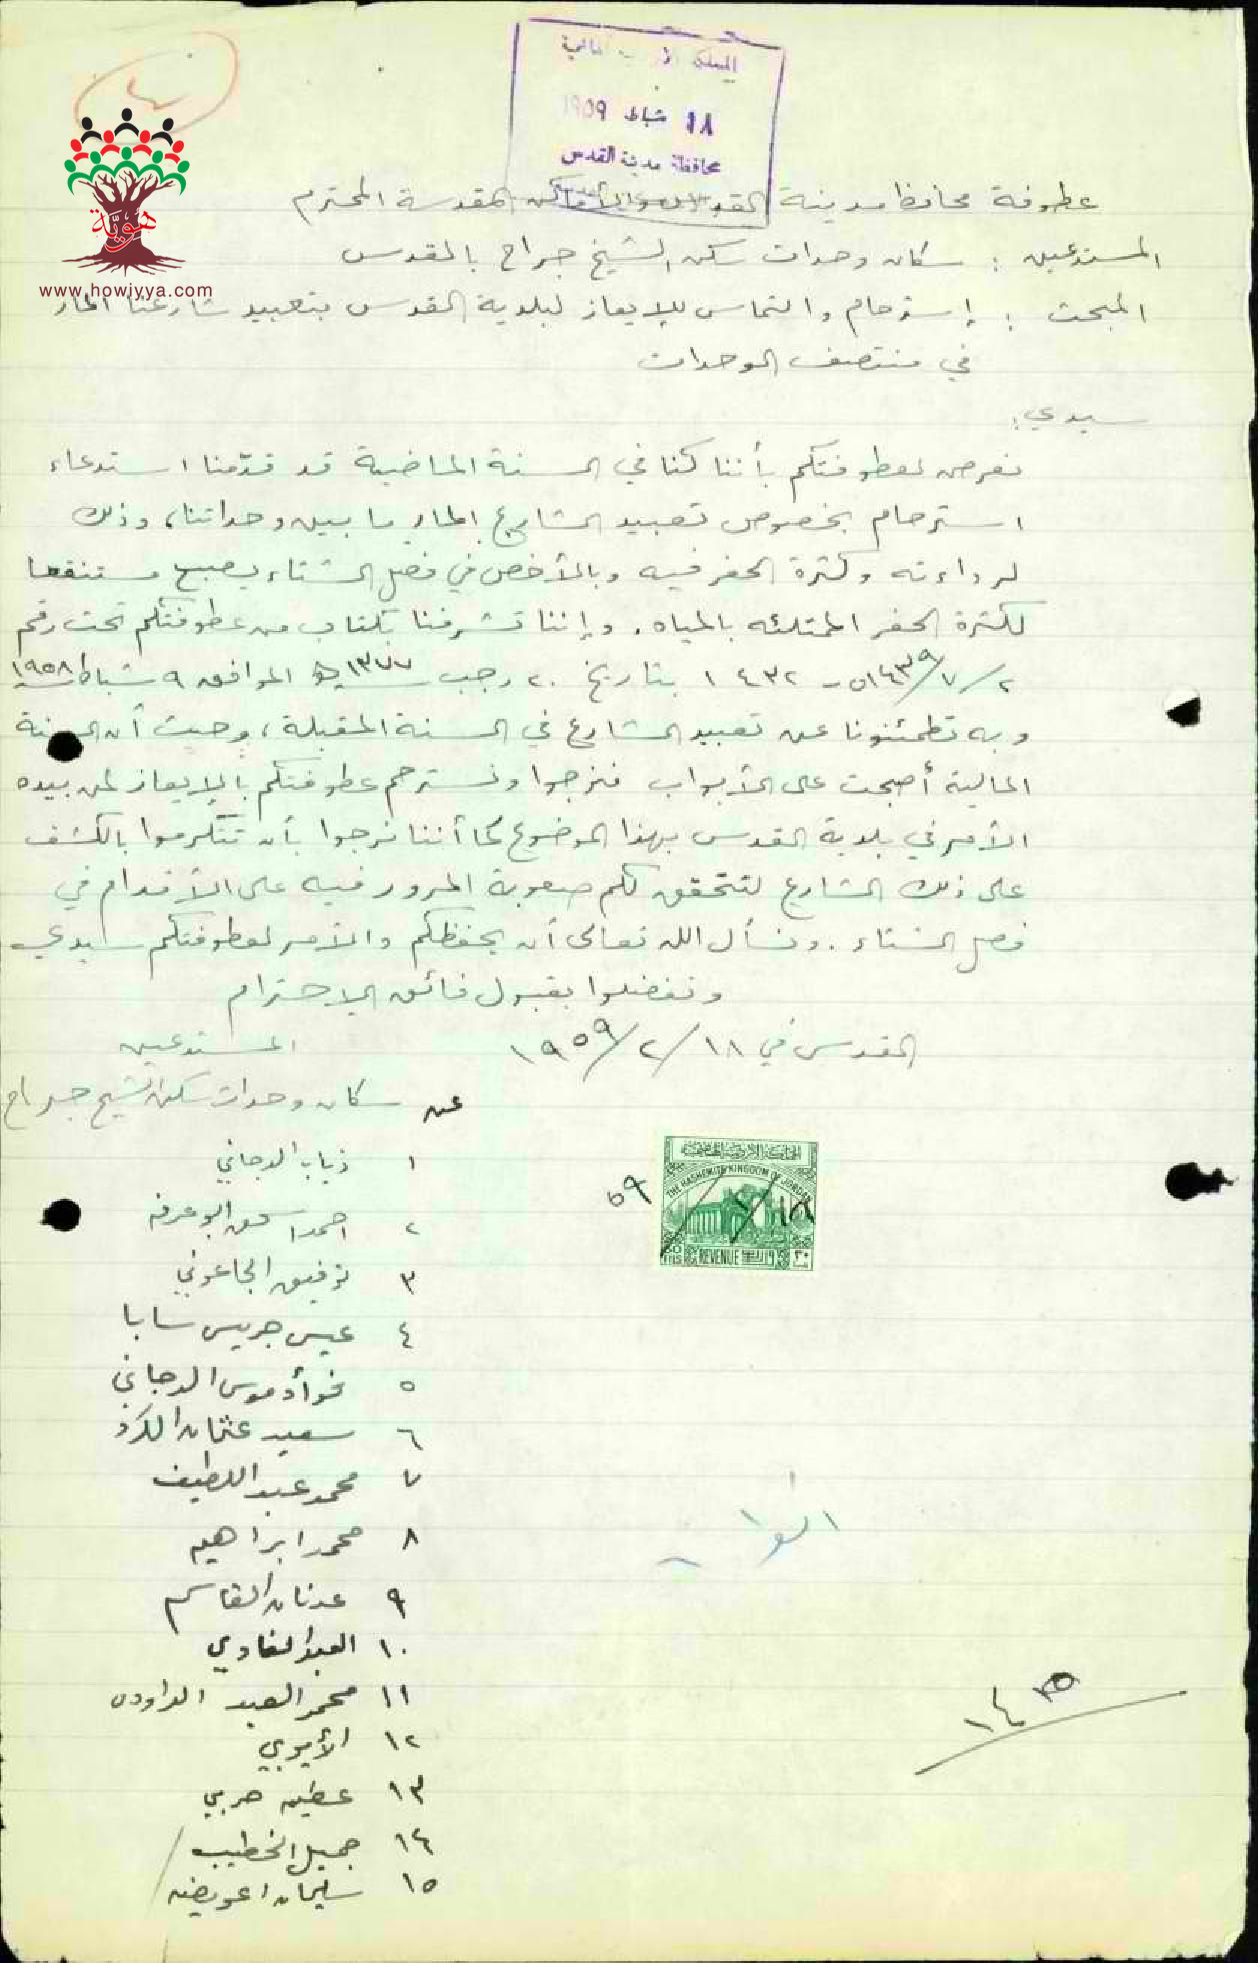 ١٨ شباط ١٩٥٩
محافظة مدينة القدس
هوية
www.howiyya.com
عطوفة محافظ مدينة القدس والأماكن المقدسة المحترم
المستدعين : سكان وحدات سكن الشيخ جراح بالقدس
المبحث : إسترحام والتماس للإيعاز لبلدية القدس بتعبيد شارعنا المار
في منتصف الوحدات
سيدي :
نعرض لعطوفتكم بأننا كنا في السنة الماضية قد قدمنا استدعاء
استرحام بخصوص تعبيد الشارع المار ما بين وحداتنا، وذلك
لرداءته وكثرة الحفر فيه وبالأخص في فصل الشتاء يصبح مستنقعا
لكثرة الحفر الممتلئه بالمياه . وإننا تشرفنا بكتاب من عطوفتكم تحت رقم
بتاريخ ٢٠ رجب سنة ١٣٧٧ هـ الموافق ٩ شباط سنة ١٩٥٨
وبه تطمئنونا عن تعبيد الشارع في السنة المقبلة، وحيث أن السنة
المالية أصبحت على الأبواب فنرجوا ونسترحم عطوفتكم بالإيعاز لمن بيده
الأمر في بلدية القدس بهذا الموضوع كما أننا نرجوا بأن تتكرموا بالكشف
على ذلك الشارع لتتحقق لكم صعوبة المرور فيه على الأقدام في
فصل الشتاء . ونسأل الله تعالى أن يحفظكم والأمر لعطوفتكم سيدي
وتفضلوا بقبول فائق الإحترام
القدس في ١٨/٢/١٩٥٩
المستدعين
عن سكان وحدات سكن الشيخ جراح
المملكة الاردنية الهاشمية
THE HASHEMITE KINGDOM OF JORDAN
REVENUE
١٨ / ٢ / ٥٩
١ ذياب الدجاني
٢ احمد اسحق ابو عرفه
٣ توفيق الجاعوني
٤ عيسى جريس سابا
٥ فؤاد موسى الدجاني
٦ سعيد عثمان الكرد
٧ محمد عبد اللطيف
٨ محمد ابراهيم
٩ عدنان القاسم
١٠ العبد الفادي
١١ محمد العبد الداودي
١٢ الأيوبي
١٣ عطيه حربي
١٤ جميل الخطيب
١٥ سليمان عويضه